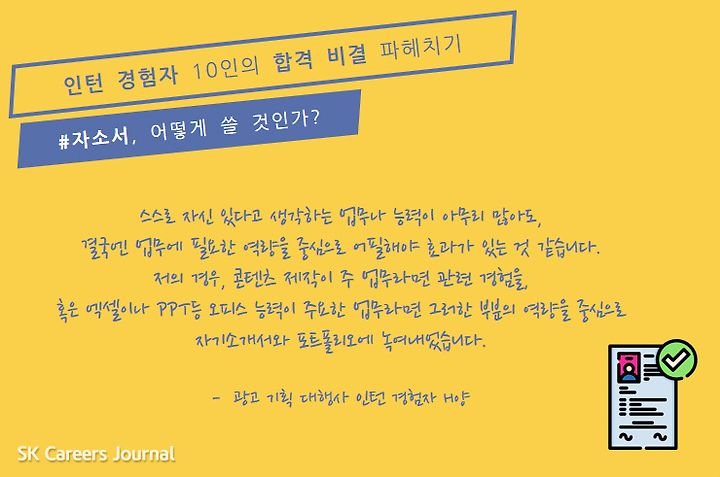 인턴 경험자 10인의 합격 비결 파헤치기
#자소서, 어떻게 쓸 것인가?
스스로 자신 있다고 생각하는 업무나 능력이 아무리 많아도,
결국엔 업무에 필요한 역량을 중심으로 어필해야 효과가 있는 것 같습니다.
저의 경우, 콘텐츠 제작이 주 업무라면 관련 경험을,
혹은 엑셀이나 PPT등 오피스 능력이 주요한 업무라면 그러한 부분의 역량을 중심으로
자기소개서와 포트폴리오에 녹여내었습니다.
- 광고 기획 대행사 인턴 경험자 H양
SK Careers Journal